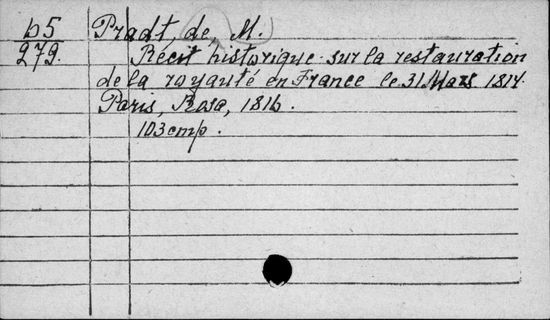 b5 Pradt, de, M.
279. Récit historique sur la restauration
de la royauté en France le 31 Mars 1814.
Paris, Rosa, 1816.
103 стр.